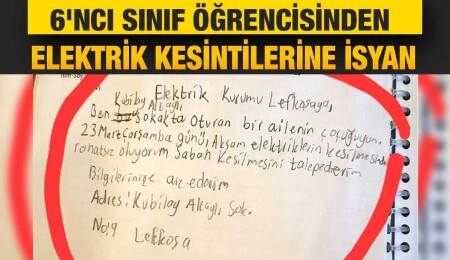 6'NCI SINIF ÖĞRENCİSİNDEN
ELEKTRİK KESİNTİLERİNE İSYAN
Elektrik Kurumu Lefkoşaya
Kubilay Altaylı
Ben sokakta Oturan bir ailenin çocuğuyum.
23 Mart Çarşamba günü Akşam elektriklerin kesilmesinden
rahatsız oluyorum Sabah Kesilmesini talep ederim
Bilgilerinize arz ederim
Adres: Kubilay Altaylı Sok.
No: 9
Lefkoşa